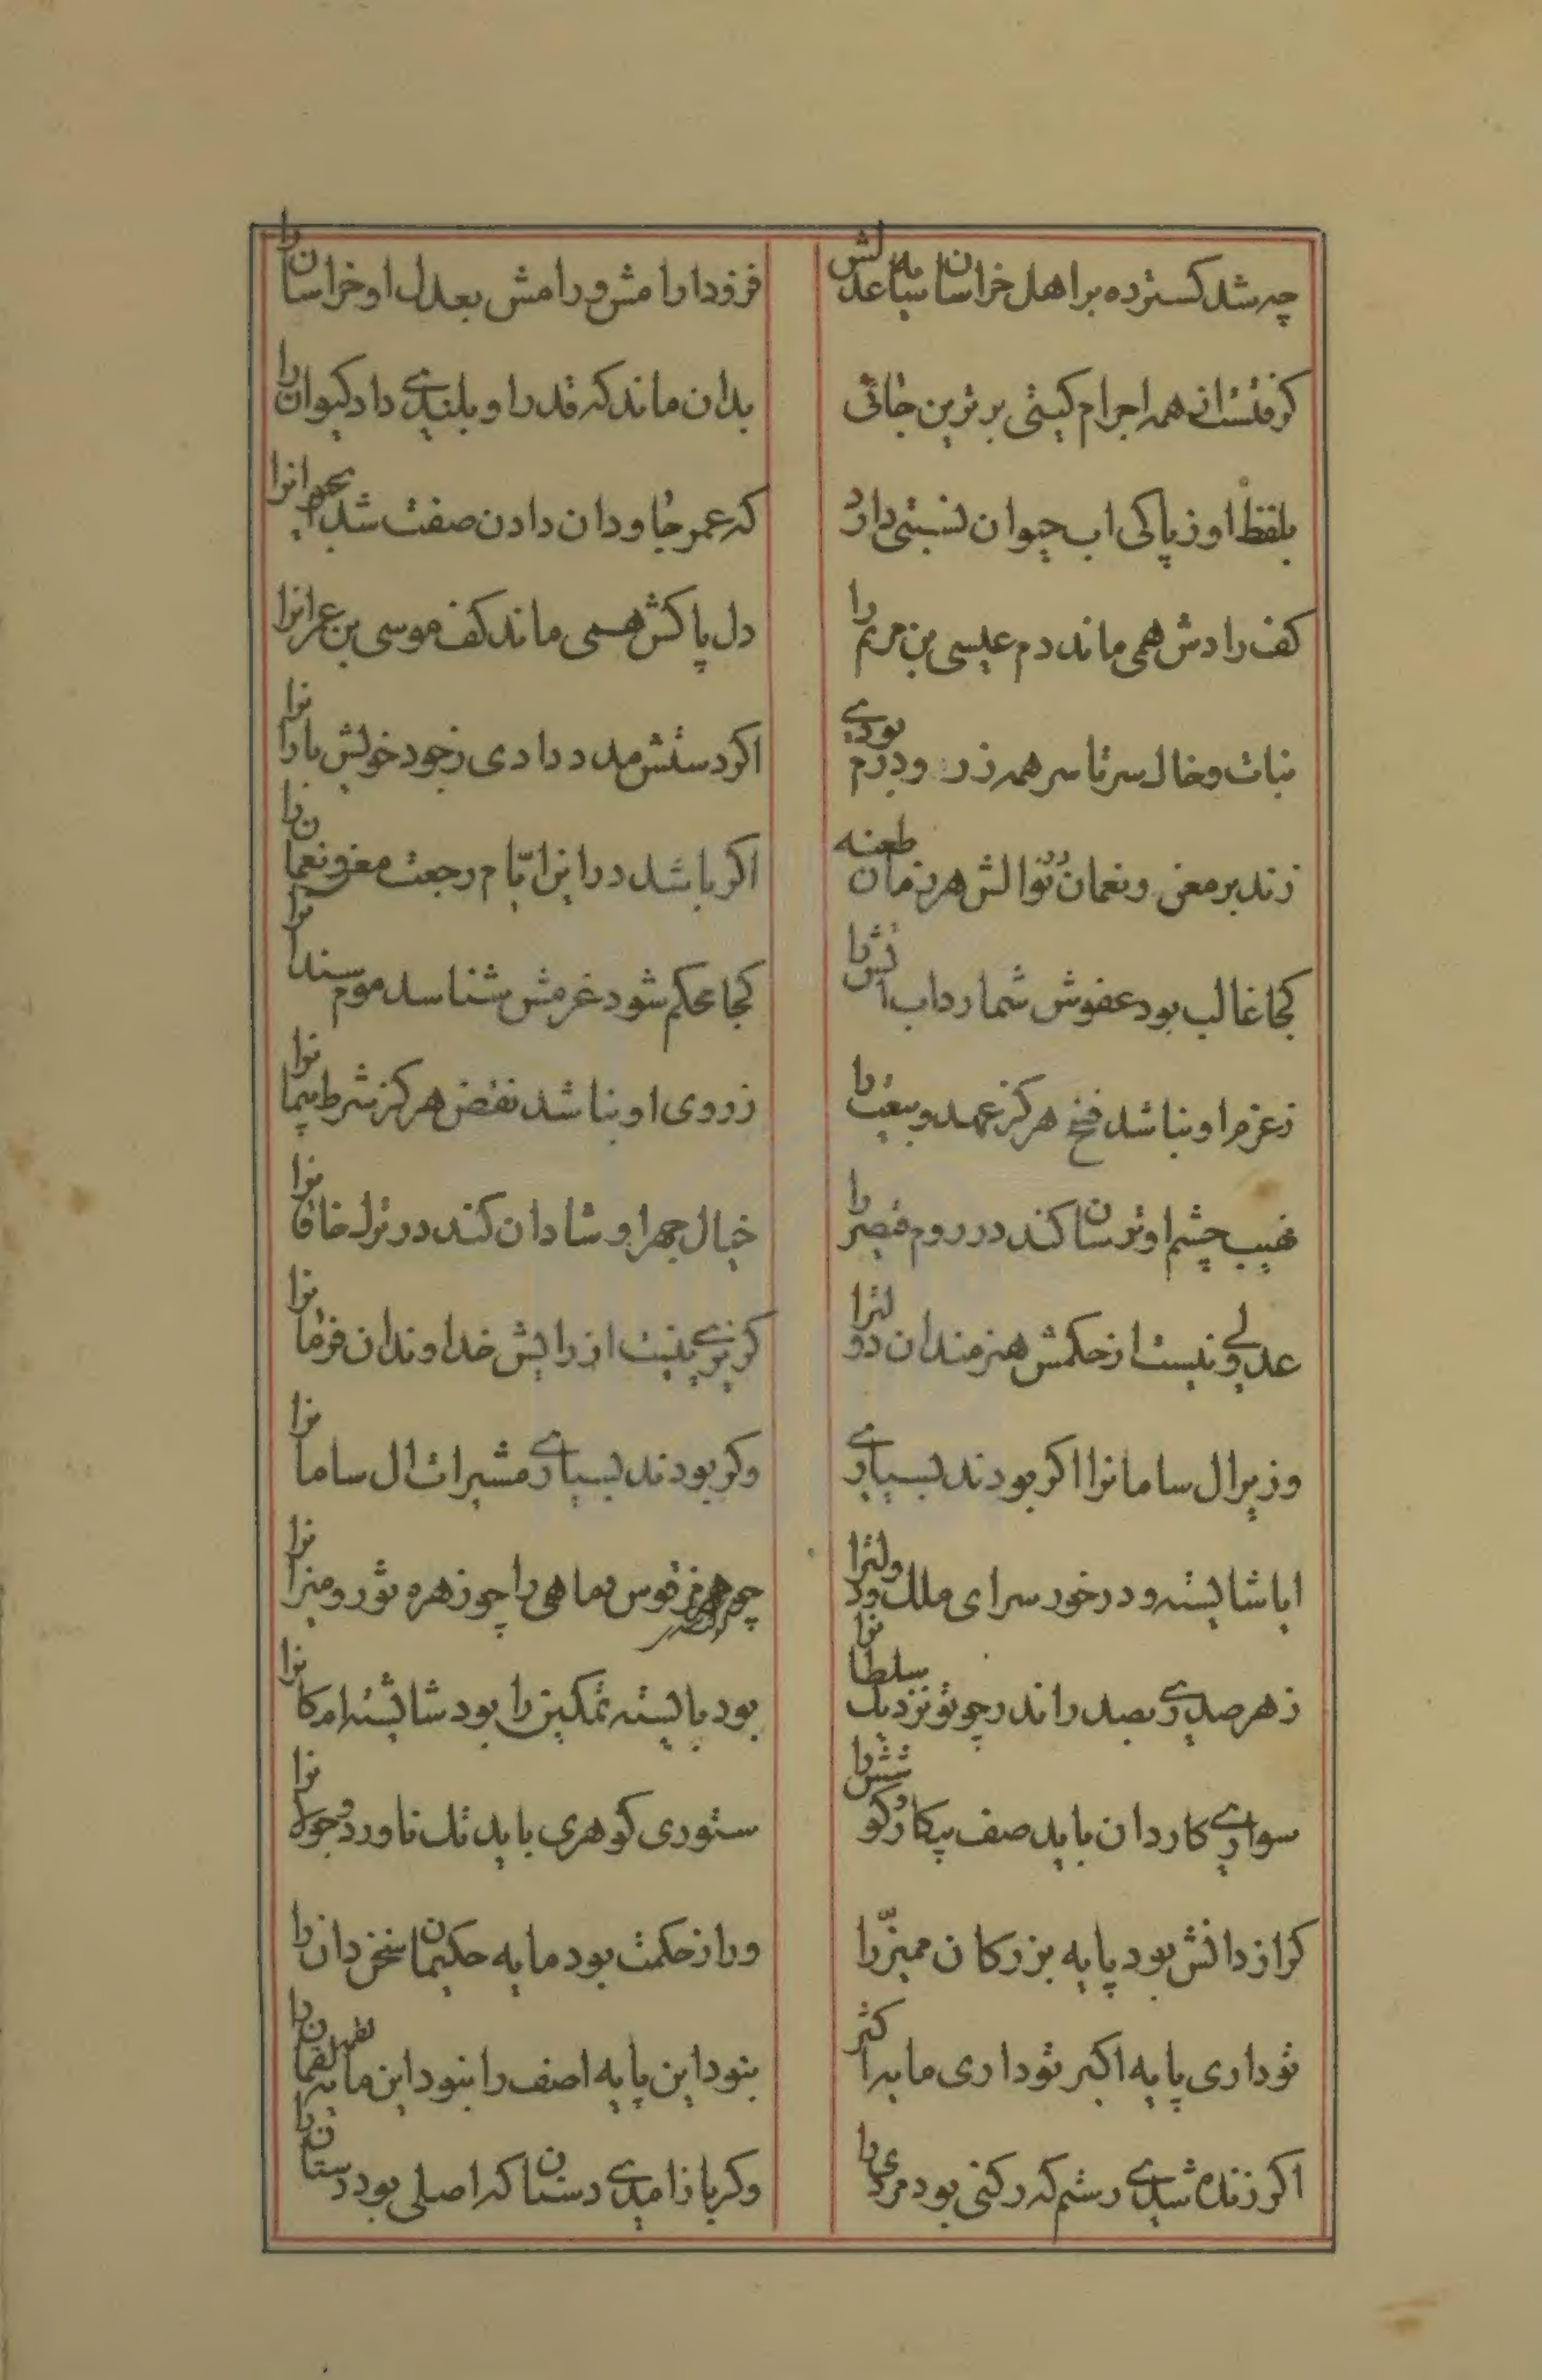 چه شد کسترده بر اهل خراسان سایه عدلش
فزود ارامش و رامش بعدل او خراسان را
کرفتستانی همه اجرام کیتی برترین جائی
بدان ماند که قدر او بلندی داد کیوان را
بلفظ او ز پاکی اب حیوان نسبتی دارد
که عمر جاودان دادن صفت شد اب حیوانرا
کف رادش همی ماند دم عیسی بن مریم را
دل پاکش همی ماند کف موسی بن عمرانرا
نبات و خال سرتاسر همه زر و درم بودی
اکر دستش مدد دادی ز جود خویش بارانرا
زند بر معن و نعمان نوالش هر زمان طعنه
اکر باشد در این ایّام رجعت معن و نعمان را
کجا غالب بود عفوش شمارد اب اتش را
کجا محکم شود عزمش شناسد موم سندانرا
ز عزم او نباشد فسخ هرکز عهد و بیعت را
ز روی او نباشد نقض هرکز شرط پیمانرا
نهیب چشم او ترسان کند در روم قیصر را
خیال چهر او شادان کند در ترک خاقانرا
عدیلی نیست از حکمش هنرمندان دولترا
کزیری نیست از رایش خداوندان فرمانرا
وزیر ال سامانرا اکر بودند بسیاری
وکر بودند بسیاری مشیرات ال سامانرا
ایا شایسته و درخور سرای ملک و دولترا
چو هرمز قوس و ماهی را چو زهره ثور و میزانرا
ز هر صدری بصدر اندر چو تو نزدیک سلطانرا
بود بایسته تمکین را بود شایسته امکانرا
سواری کاردان باید صف پیکار و کوشش را
ستوری کوهری باید تک ناورد و جولانرا
کرا از دانش بود پایه بزرکان ممیّز را
ورا از حکمت بود مایه حکیمان سخن دان را
تو داری پایه اکبر تو داری مایه اکثر
بنود این پایه اصف را بنود این مایه لقمان را
اکر زنده شدی رستم که رکنی بود مردی را
وکر باز امدی دستان که اصلی بود دستان را